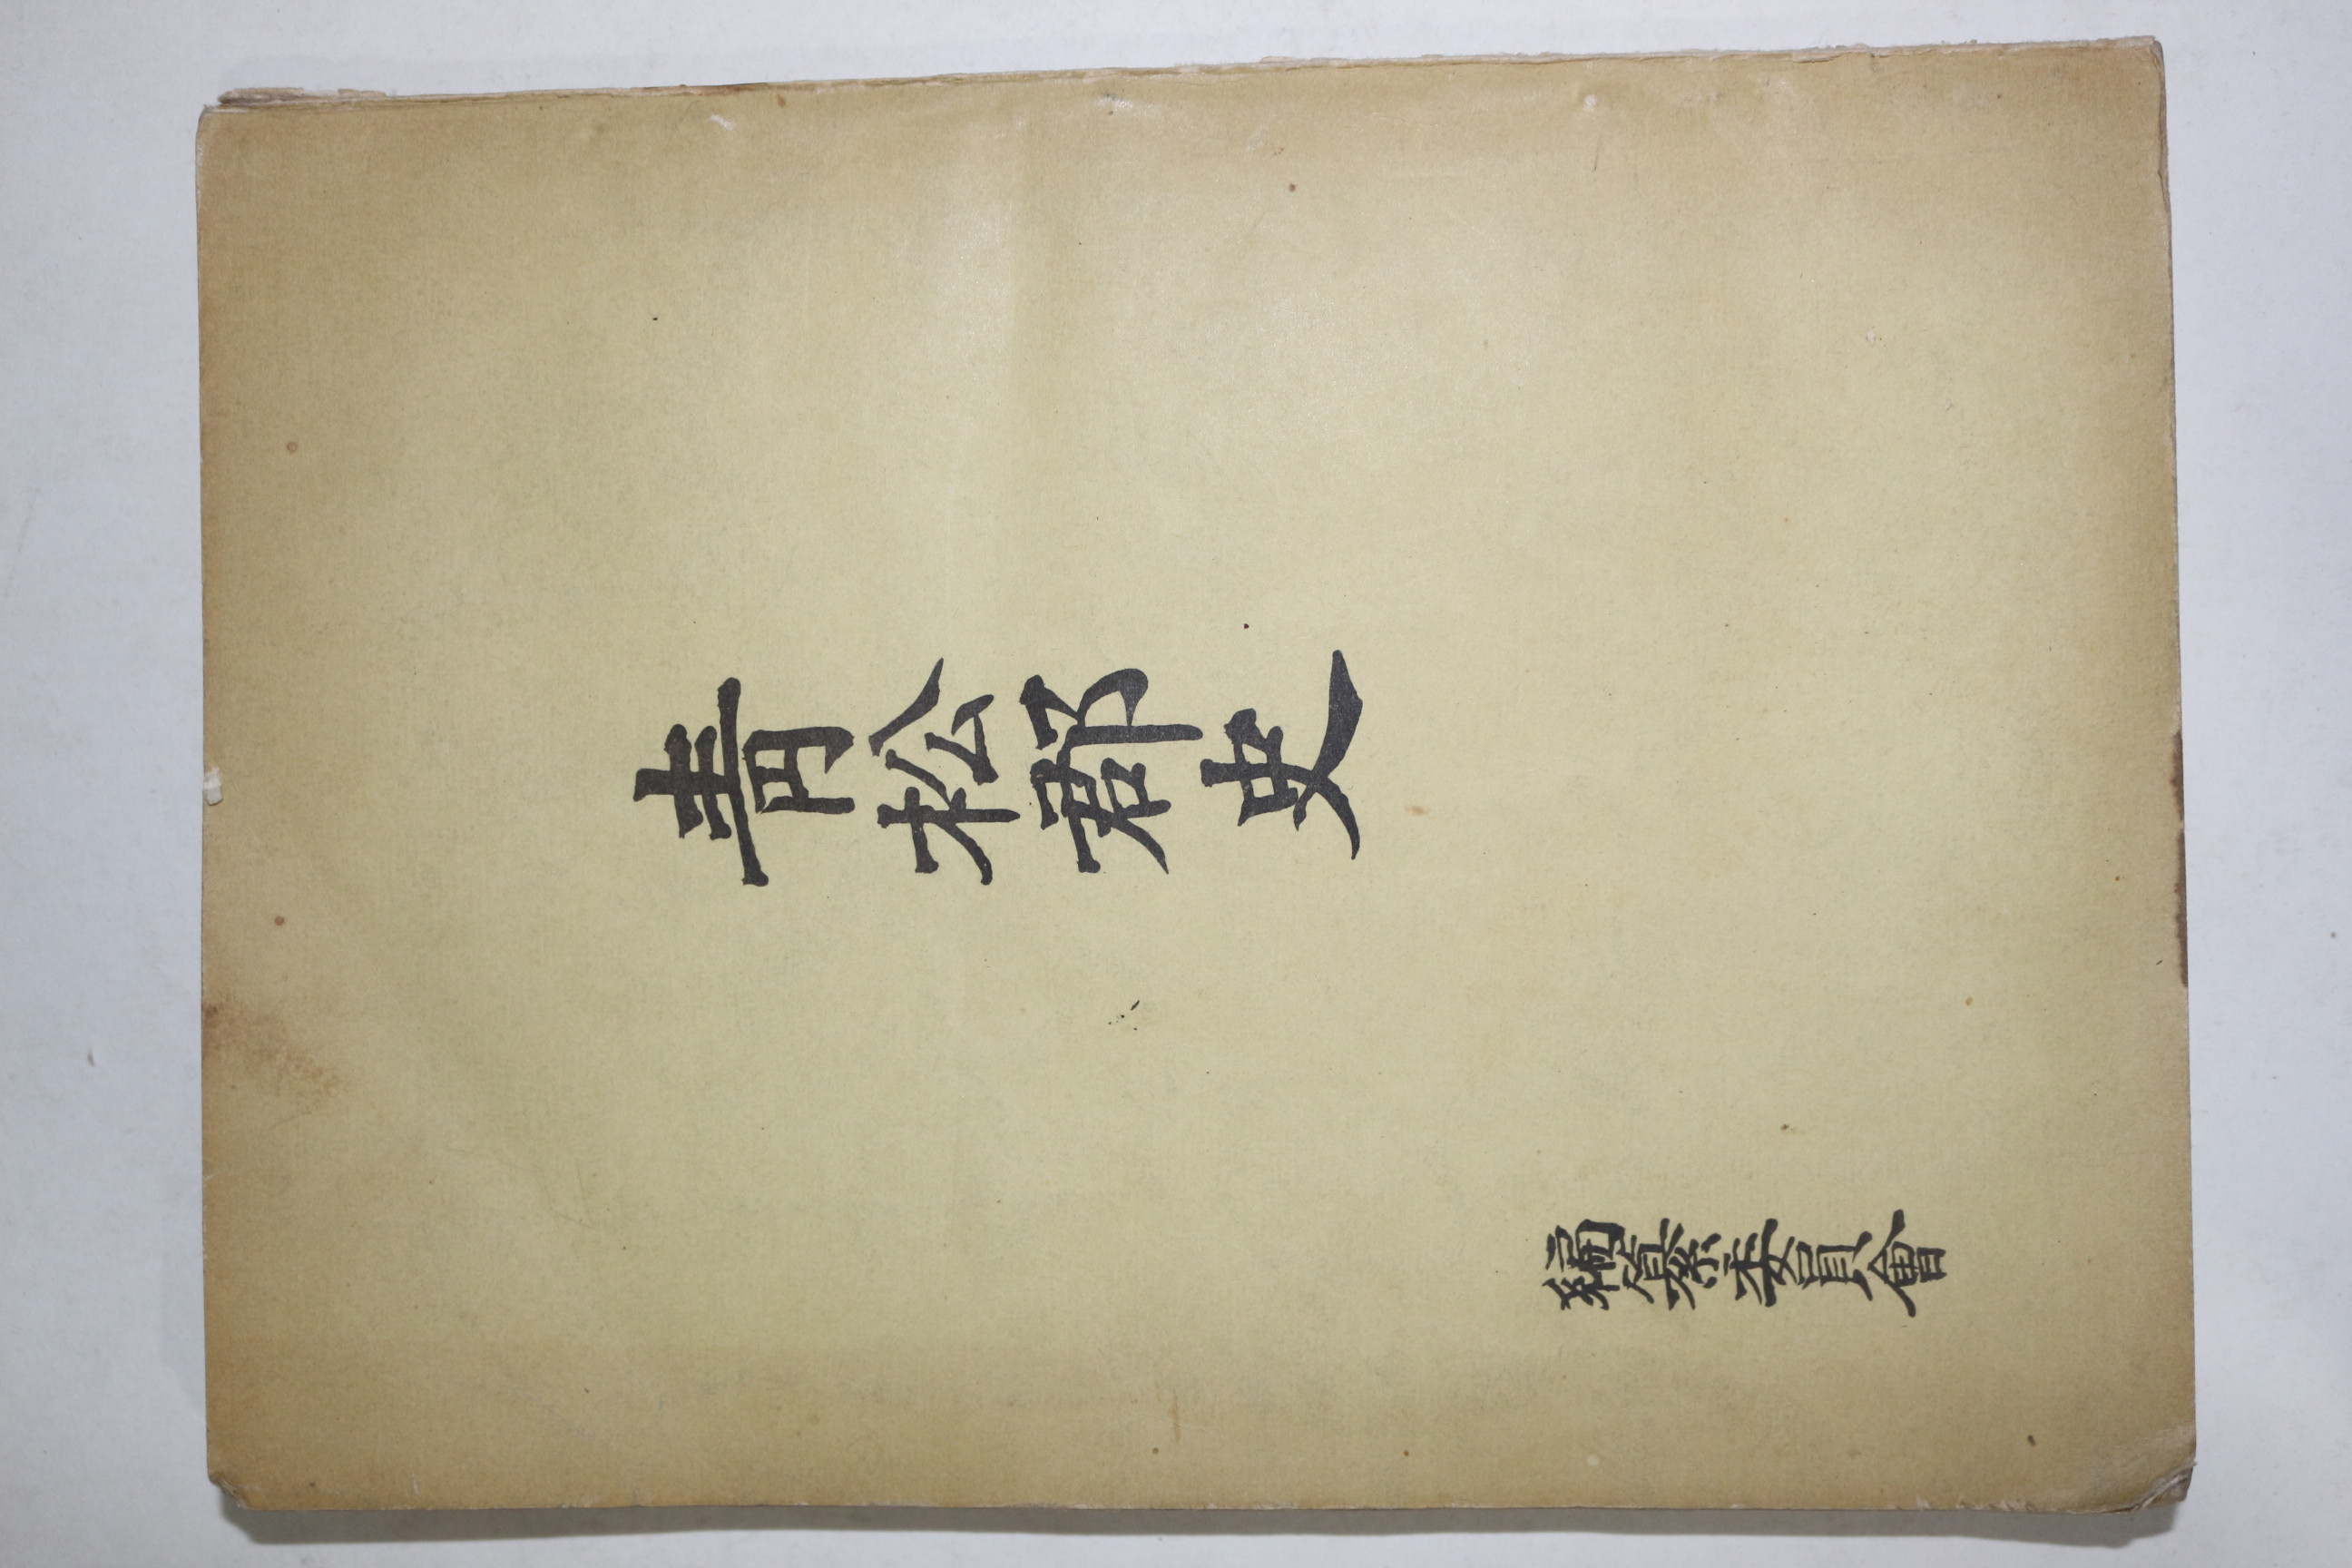 青松郡史
編纂委員會